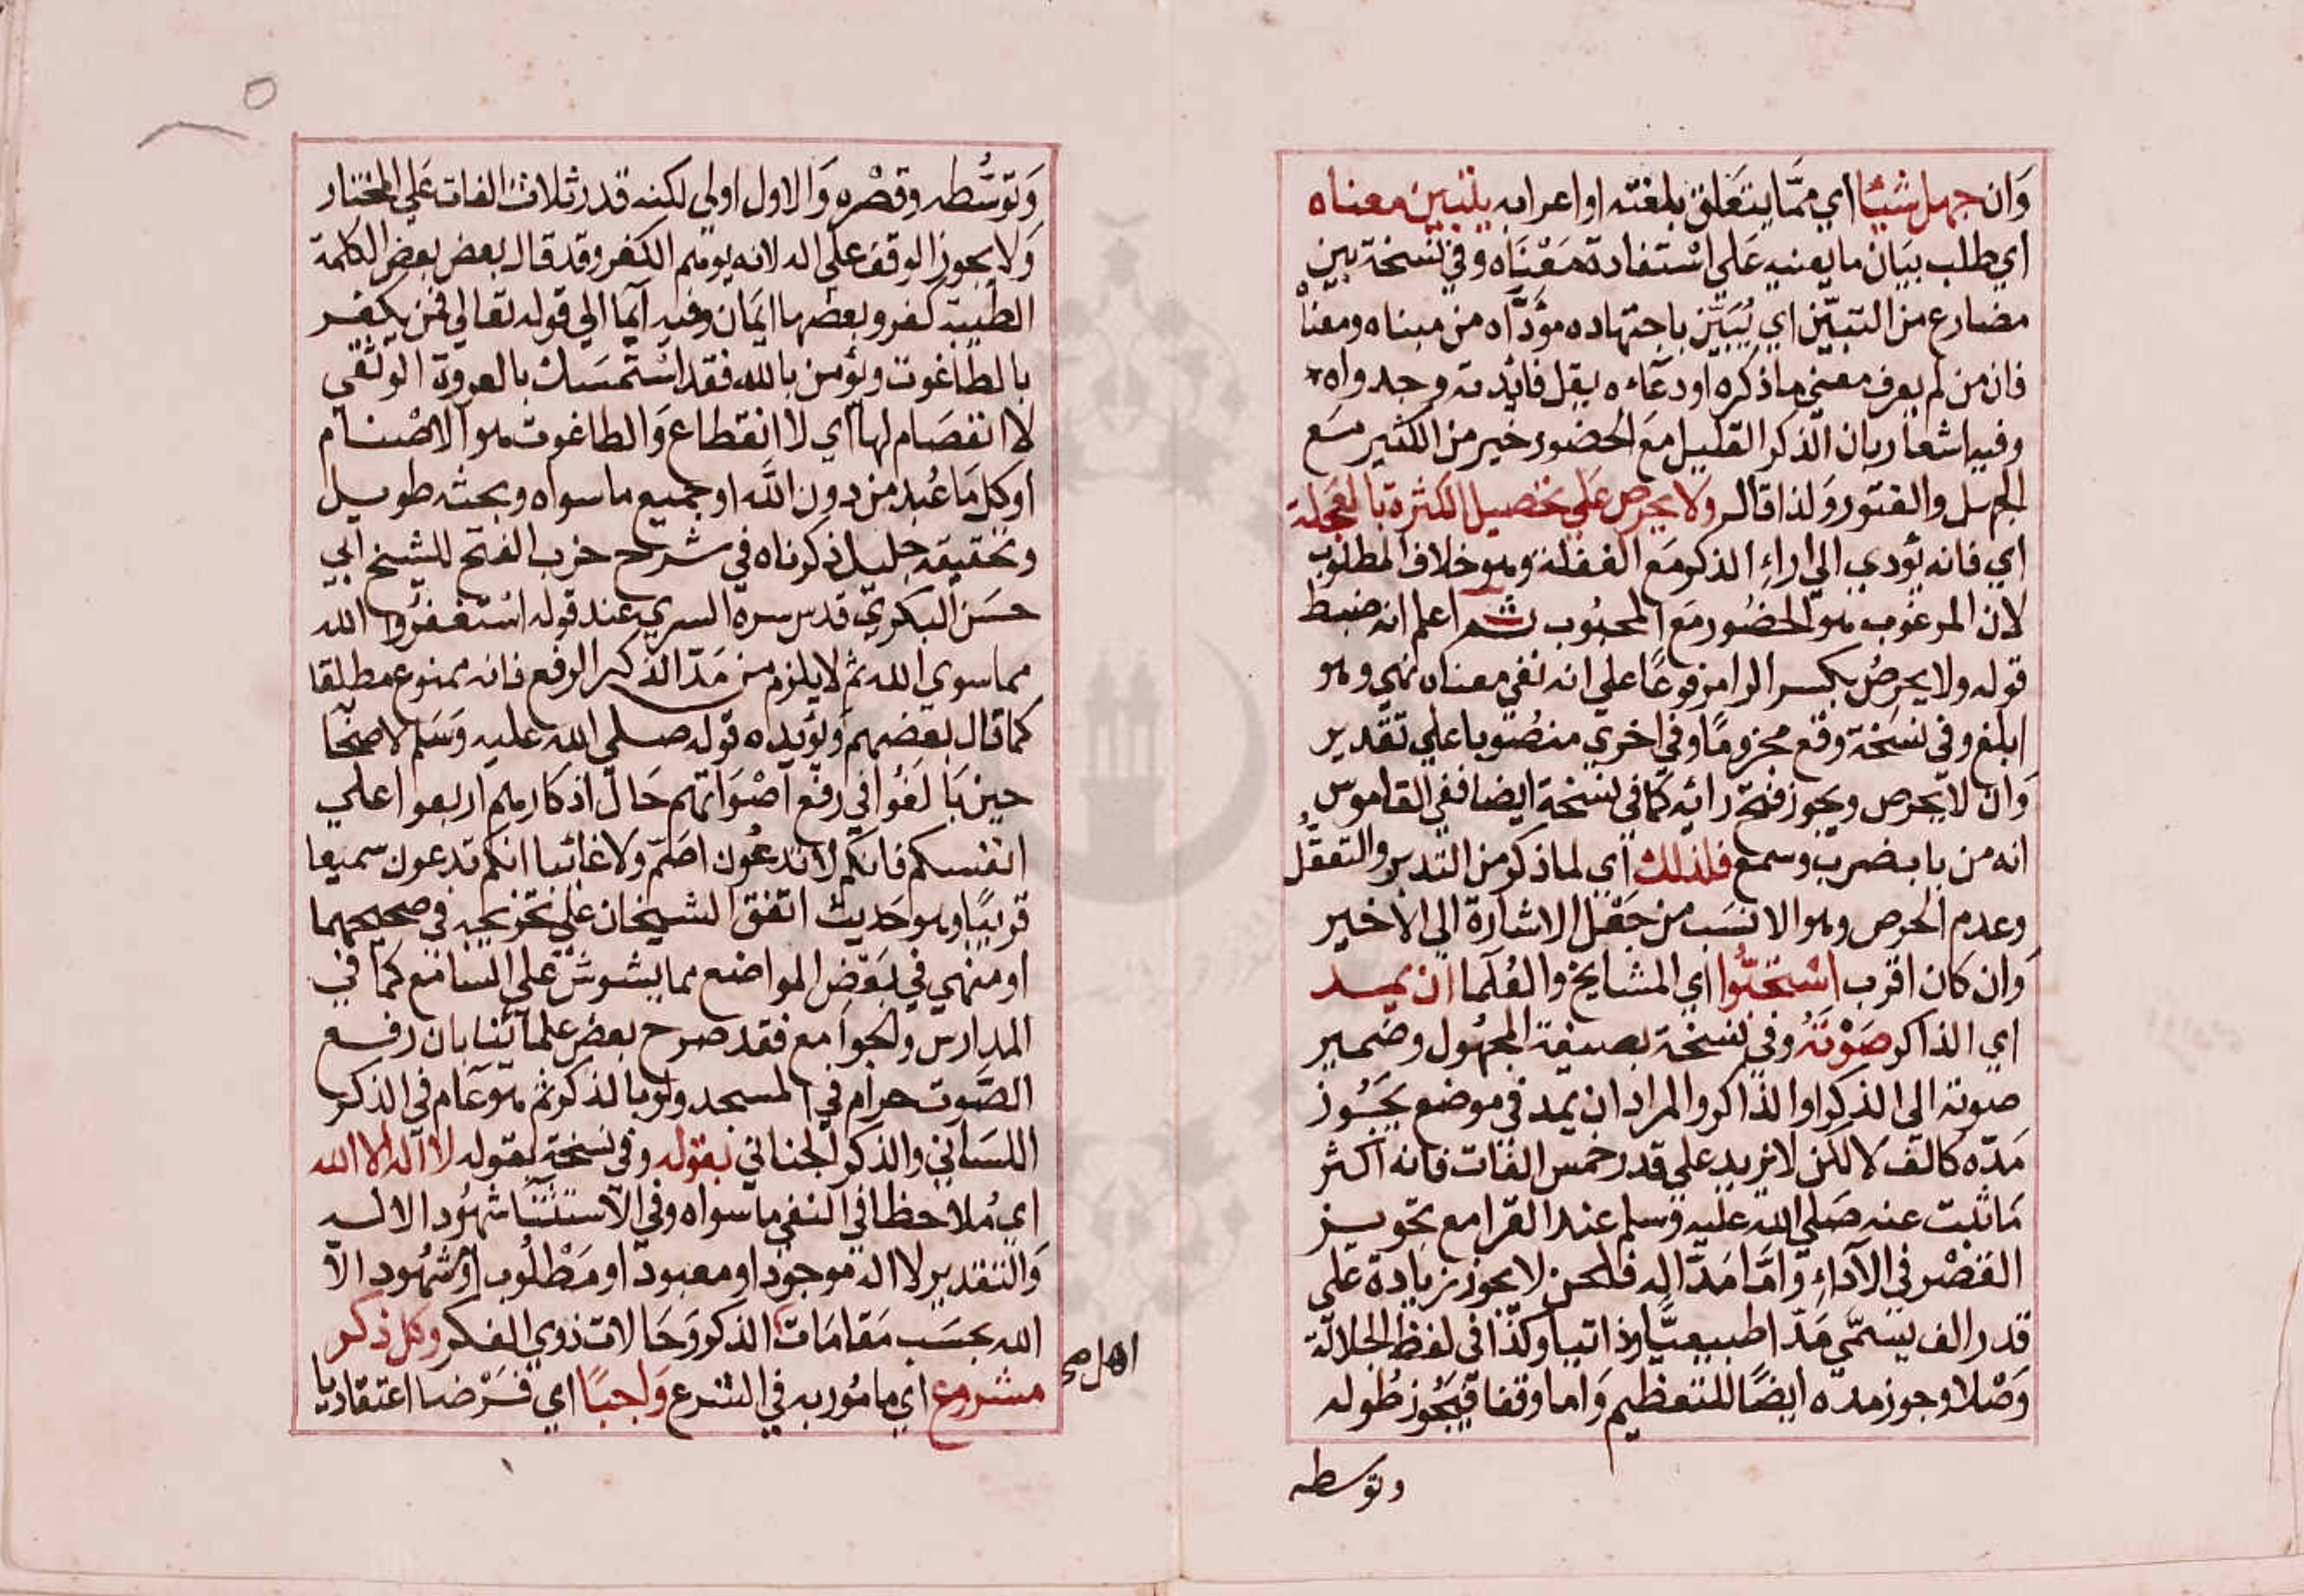 وَان جهل شيئا اي ممّا يتعلق بلغته او اعرابه يتبين معناه
اي طلب بيان ما يعنيه عَلي اسْتفادة مَعْنَاه وفي نسْخة يبين
مضارع من التبيّن اي يُبَيّن باجتهاده مؤدّاه من مبناه ومعناه
فان من لم يعرف معني ما ذكره او دعاءه يقل فائدته وجدواه
وفيه اشعار بان الذكر القليل مَع الحضور خير من الكثير مَع
الجهل والفتور وَلذا قال ولا يحرص عَلي تحصيل الكثرة بالعجلة
اي فانه يؤدي الي اراء الذكر مَع الغفلة وهو خلاف المطلوب
لان المرغوب هو الحضُور مَع المحبُوب ثم اعلم انه ضبط
قوله ولا يحرصُ بكسر الرا مرفوعًا علي انه نفي معناه نهي وهو
ابلغ وفي نسَخة وقع مجزومًا وفي اخري منصُوبا علي تقدير
وَان لا يحرص ويجوز فتح رائه كما في نسخة ايضا ففي القاموس
انه من باب ضرب وسمع فلذلك اي لما ذكر من التدبر والتعقُّل
وعدم الحرص وهو الانسَب من جَعْل الاشارة الي الاخير
وَان كان اقرب اسْتحبُّوا اي المشايخ والعُلما ان يمد
اي الذاكر صَوْتَهُ وفي نسْخة بصيغة المجهُول وضمير
صوته الي الذكر او الذاكر والمراد ان يمد في موضع يَجُوز
مَدّه كالف لا لكن لا يزيد علي قدر خمس الفات فانه اكثر
مَا ثبت عنه صَلي الله عليه وَسلم عند القرا مع تجويز
القصْر في الآداء وَامّا مَدّ اله فلحن لا يجوز زيادة علي
قدر الف يسَمّي مَدّا طبيعيًّا وذاتيا وكذا في لفظ الجلالة
وَصْلا وجوز مده ايضًا للتعظيم وَاما وقفا فيَجُوز طُوله
وتوسطه
وَتوسُّطه وقصْره وَالاول اولي لكنه قدر ثلاث الفات عَلي المختار
وَلا يجوز الوقف علي اله لانه يوهم الكفر وقد قال بعض بعض الكلمة
الطيبة كفر وبعضها ايمَان وفيه ايما الي قوله تعالي فمن يكفر
بالطاغوت ويؤمن بالله فقد اسْتمسَك بالعروة الوثقي
لا انفصَام لها اي لا انقطاع وَالطاغوت هو الاصْنام
او كل مَا عُبد من دون اللَّه او جميع ما سواه وبحثه طويل
وتحقيقه جليل ذكرناه في شرح حزب الفتح للشيخ ابي
حسَن البكريّ قدس سره السري عند قوله اسْتغفرُوا الله
مما سوي الله ثم لا يلزم من مَدّ الذكر الرفع فانه ممنوع مطلقا
كما قال بعضهم وَيؤيده قوله صلي الله عليه وَسَلم لاصحابه
حين بَالغُوا في رفع اصْوَاتهم حَال اذكارهم اربعوا علي
انفسكم فانكم لا تدعُون اصَمّ ولا غائبا انكم تدعون سميعا
قريبًا وهو حَديث اتفق الشيخان علي تخريجه في صحيحهما
او منهي في بَعْض المواضع مما يشوش علي السامع كما في
المدارس والجوامع فقد صرح بعض علمائنا بان رفع
الصَّوت حرام في المسجد ولو بالذكر ثم هو عَام في الذكر
اللسَاني والذكر الجناني بقوله وفي نسخة لقوله لا اله الا الله
اي مُلاحظا في النفي ما سواه وفي الاستثنَا شهُود الاله
وَالتقدير لا اله موجود او معبود او مَطْلُوب او شهُود الا
الله بحسَب مَقامَات الذكر وَحَالات ذوي الفكر وكل ذكر
اهل صح
مشروع اي مامُور به في الشرع وَاجبًا اي فَرْضا اعتقاديا